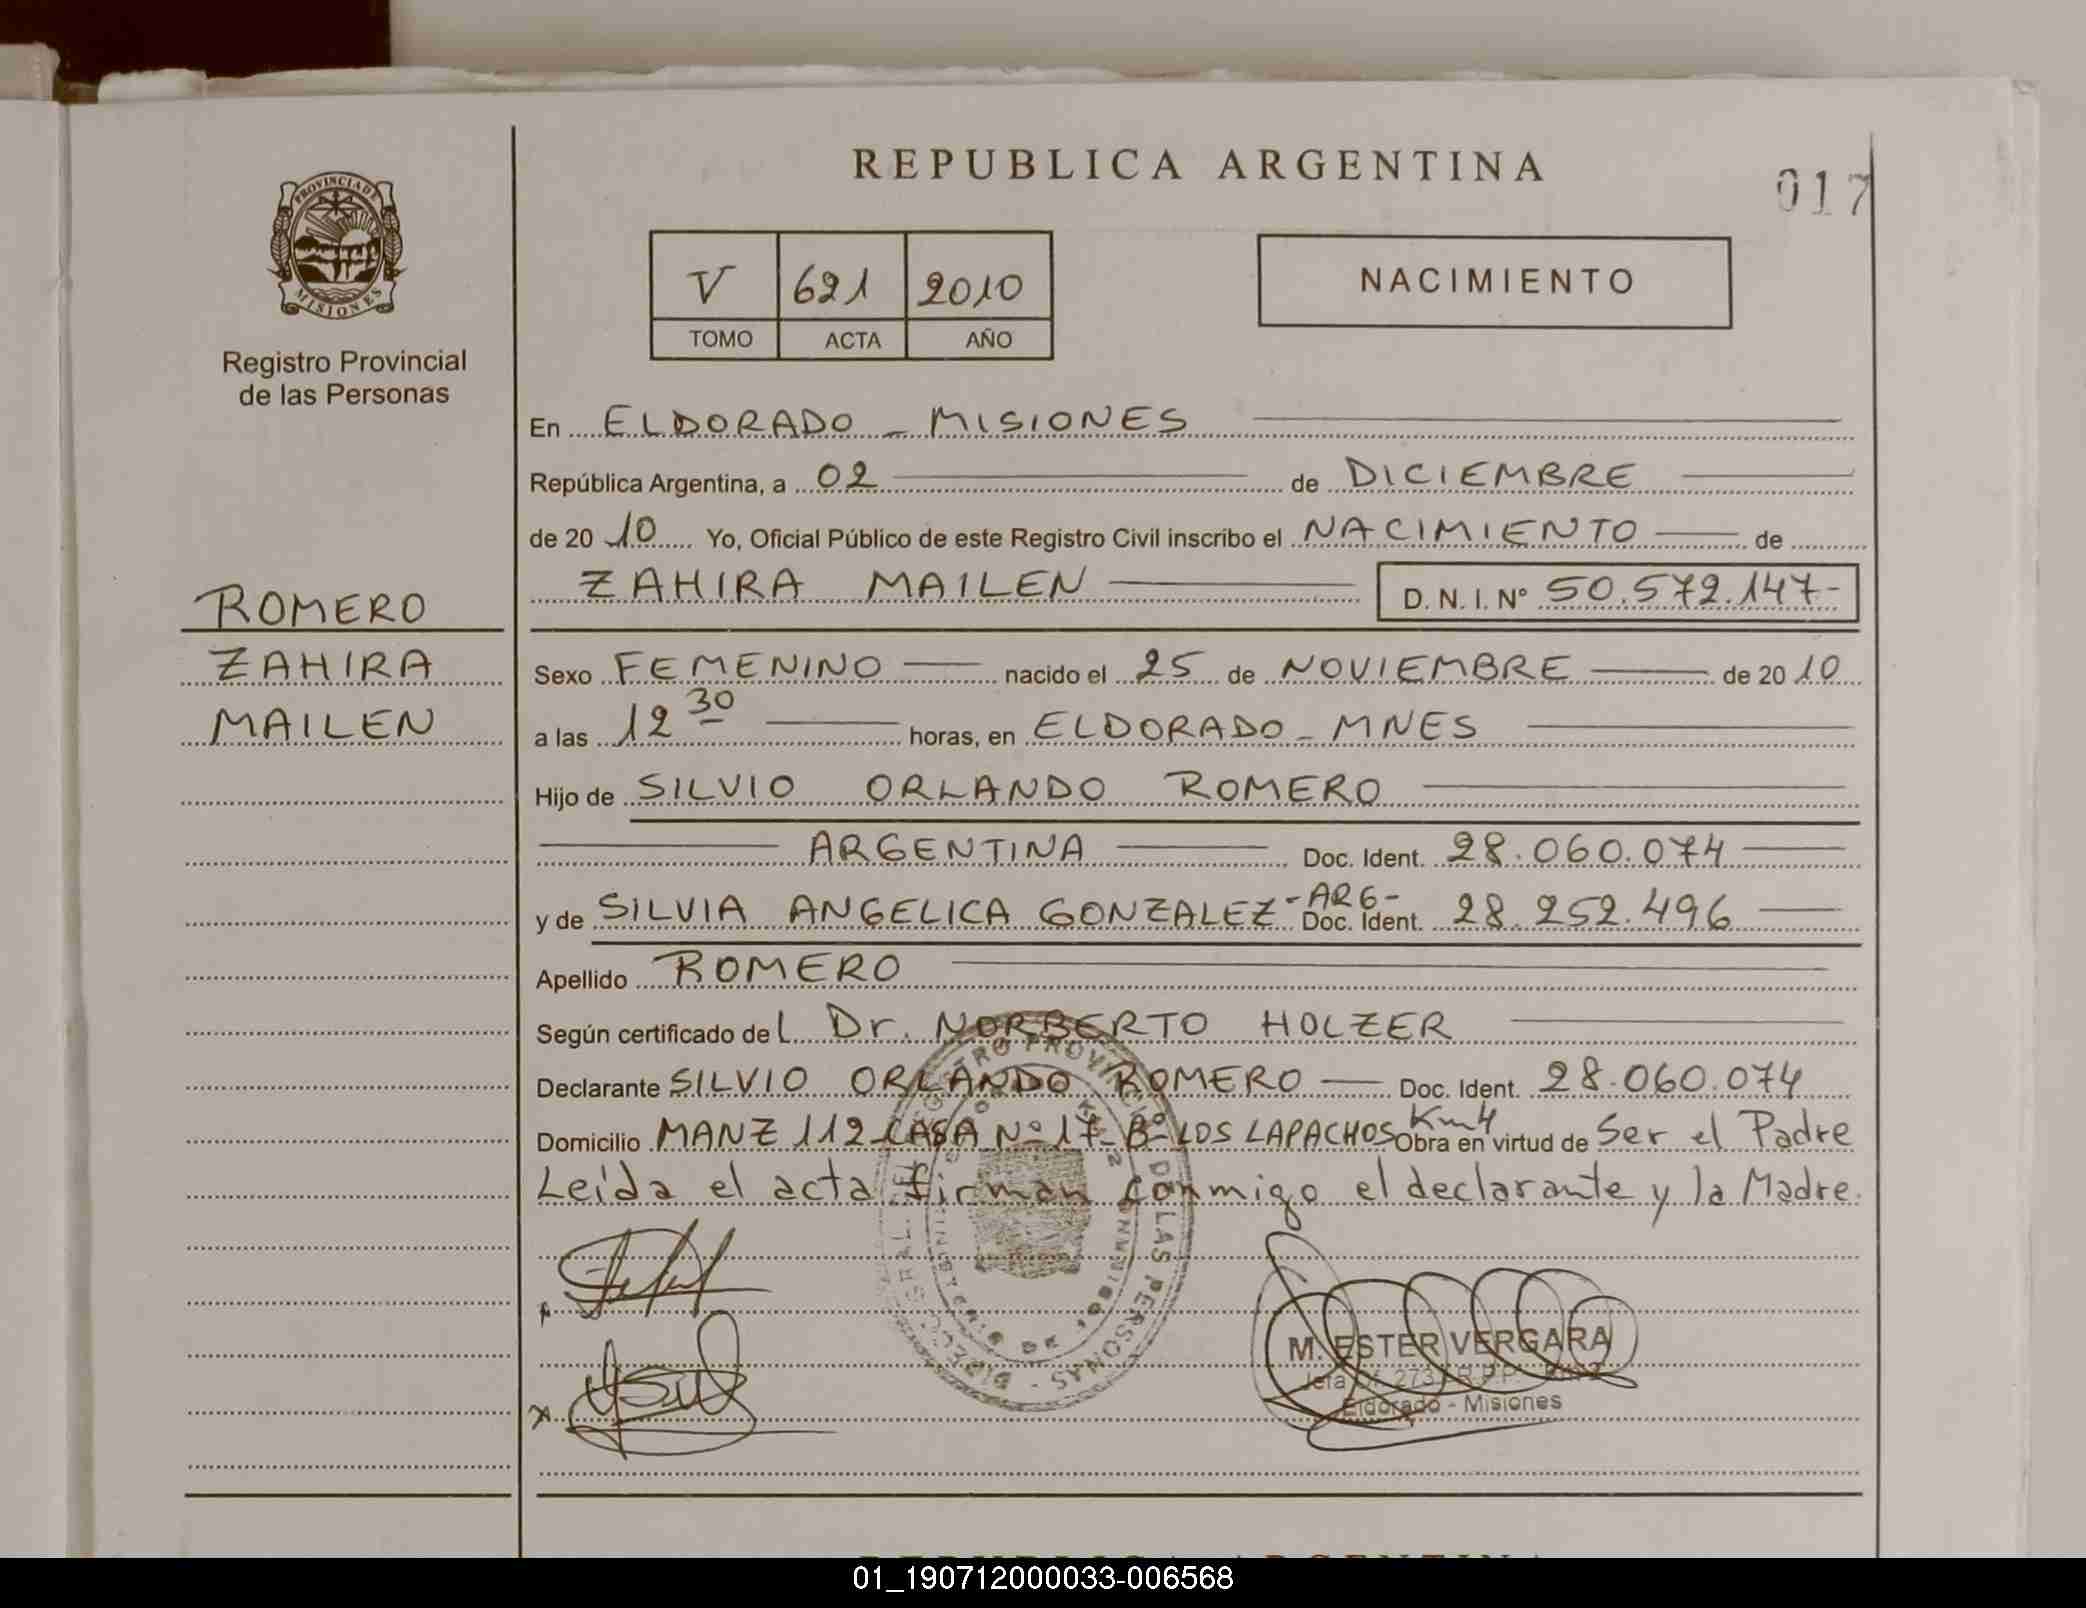 REPUBLICA ARGENTINA
017
PROVINCIA DE
MISIONES
Registro Provincial
de las Personas
V 621 2010
TOMO ACTA AÑO
NACIMIENTO
En ELDORADO - MISIONES
República Argentina, a 02 de DICIEMBRE
de 2010 Yo, Oficial Público de este Registro Civil inscribo el NACIMIENTO de
ZAHIRA MAILEN D. N. I. Nº 50.572.147-
ROMERO
ZAHIRA
MAILEN
Sexo FEMENINO nacido el 25 de NOVIEMBRE de 2010
a las 12 30 horas, en ELDORADO - MNES
Hijo de SILVIO ORLANDO ROMERO
ARGENTINA Doc. Ident. 28.060.074
y de SILVIA ANGELICA GONZALEZ -ARG- Doc. Ident. 28.252.496
Apellido ROMERO
Según certificado del Dr. NORBERTO HOLZER
Declarante SILVIO ORLANDO ROMERO Doc. Ident. 28.060.074
Domicilio MANZ 112-CASA Nº 17-Bº LOS LAPACHOS Km4 Obra en virtud de Ser el Padre
Leída el acta firman conmigo el declarante y la Madre.
M. ESTER VERGARA
Jefa Of. 273 R.P.P. Km 2
Eldorado - Misiones
REPUBLICA ARGENTINA
01_190712000033-006568